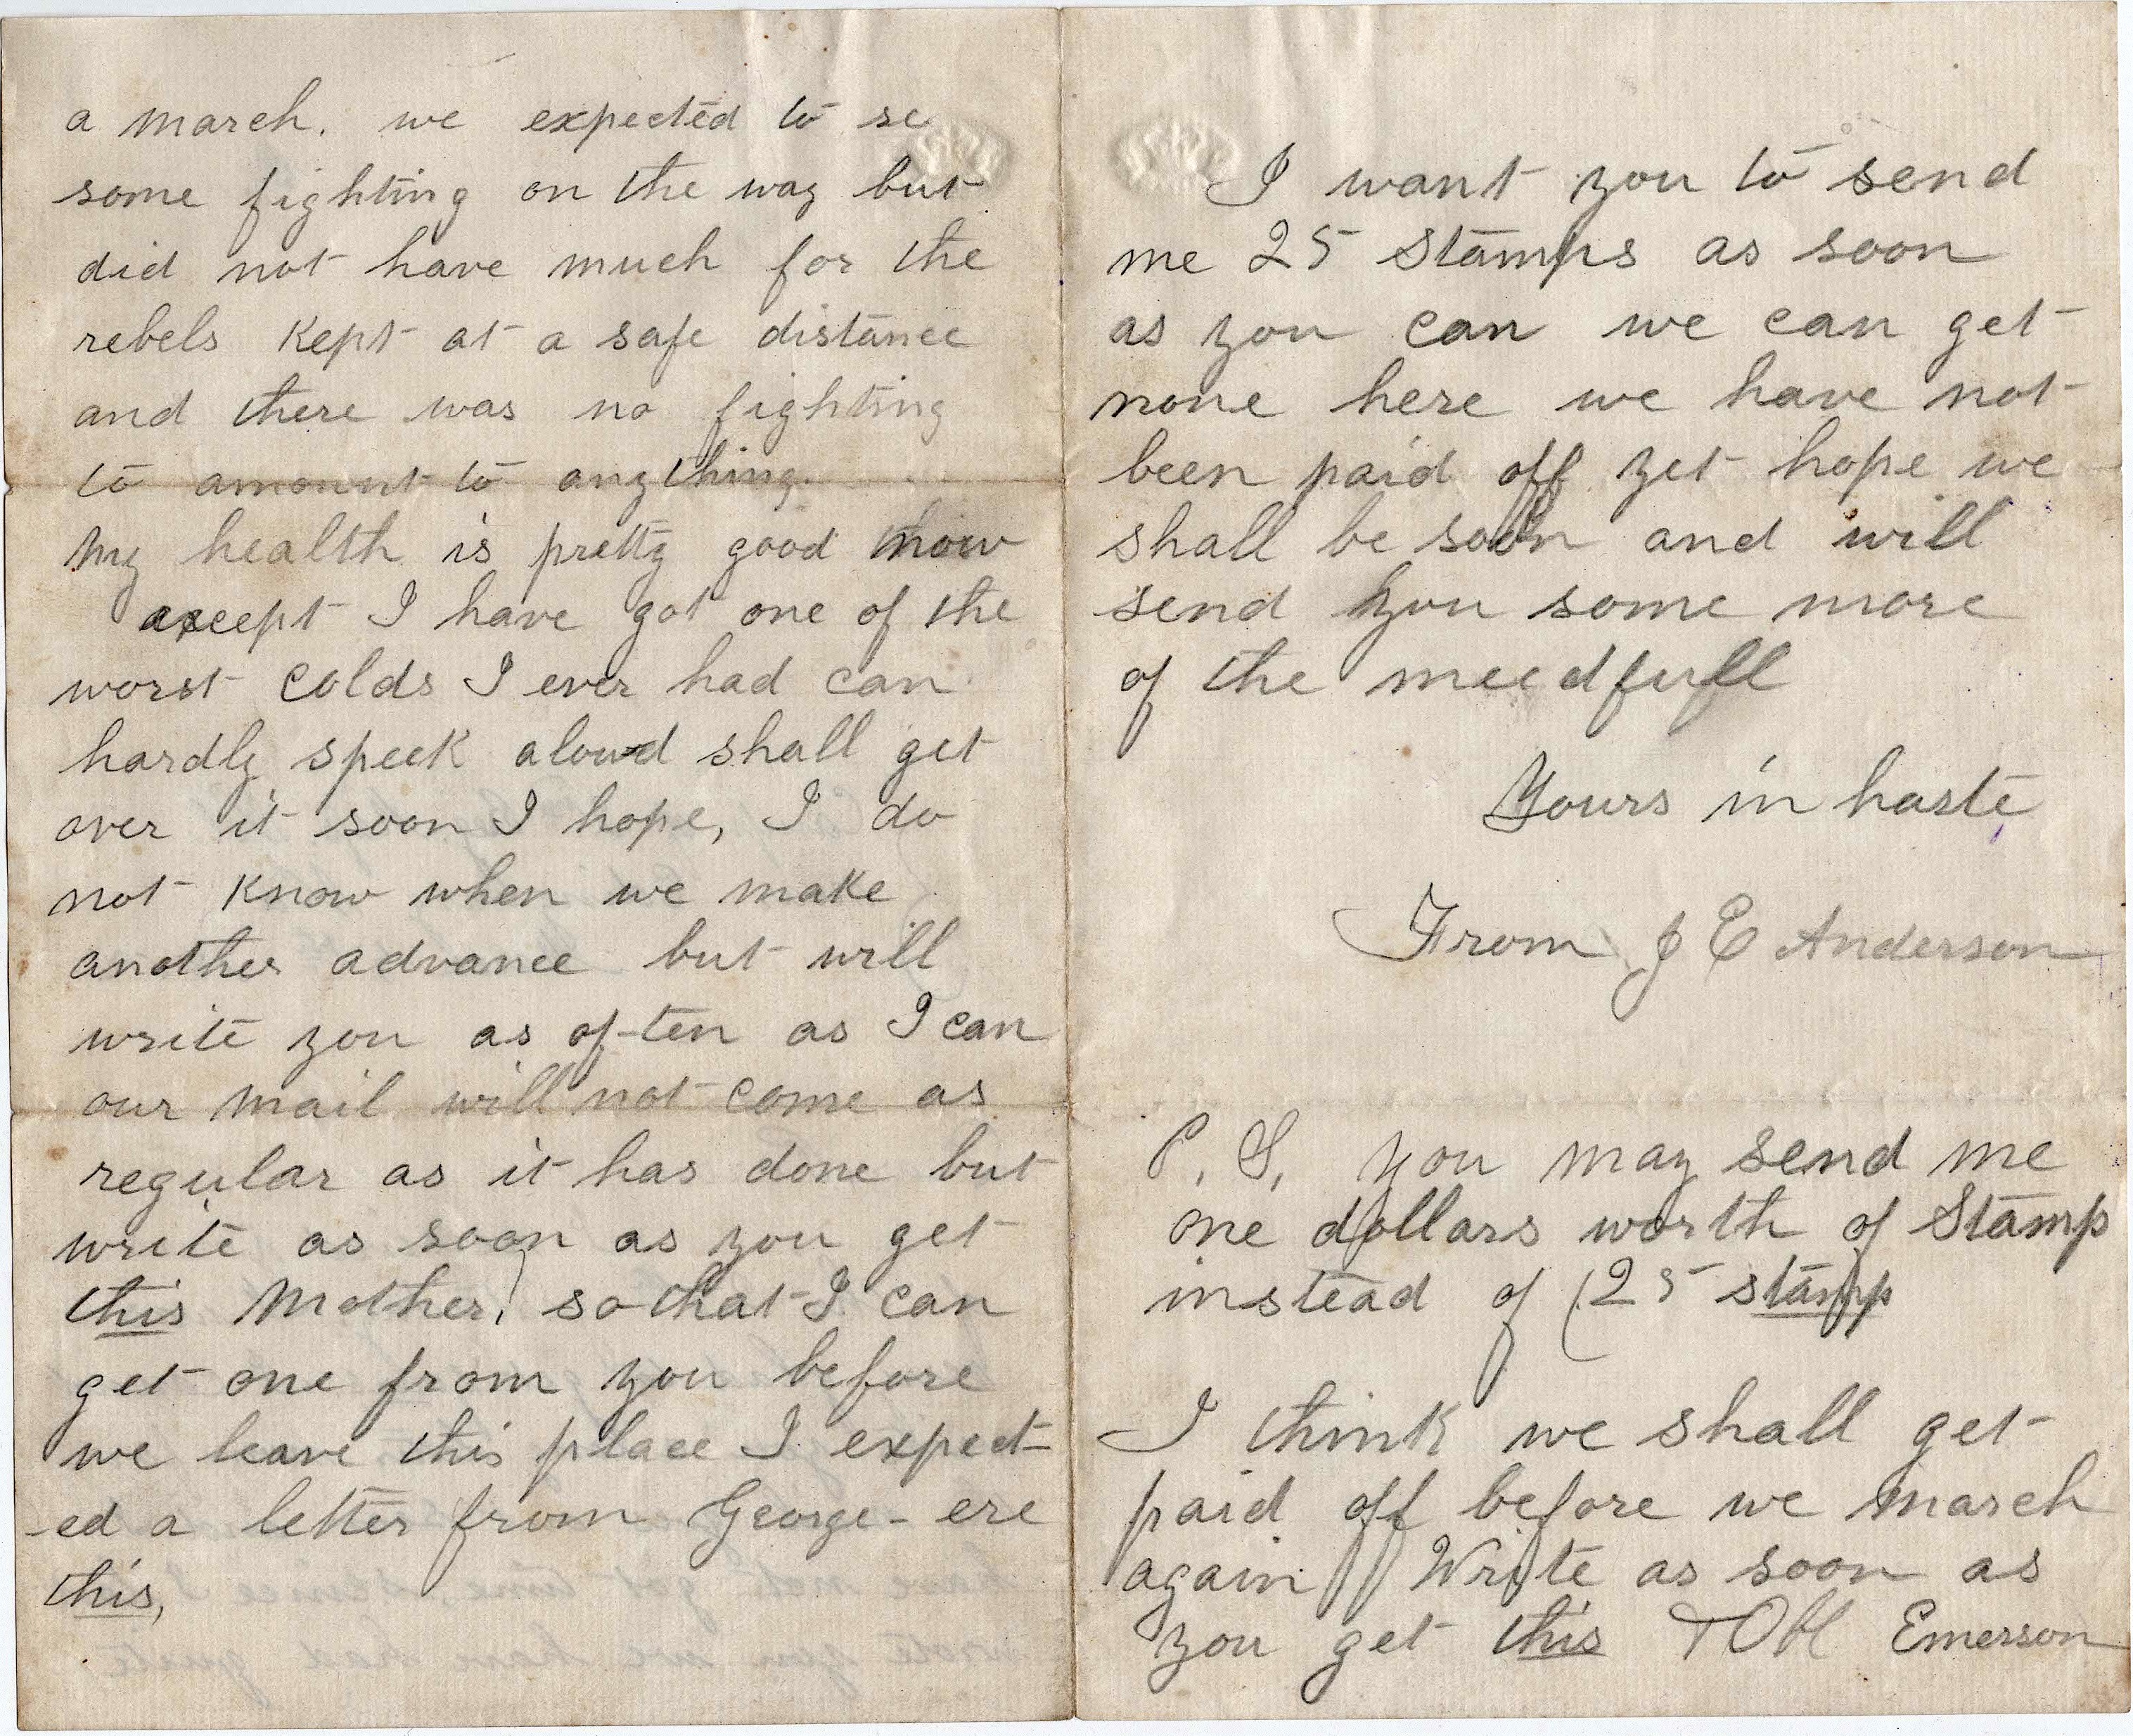 a march. we expected to se
some fighting on the way but
did not have much for the
rebels kept at a safe distance
and there was no fighting
to amount to anything.
My health is pretty good now
except I have got one of the
worst colds I ever had can
hardly speek aloud shall get
over it soon I hope, I do
not know when we make
another advance but will
write you as often as I can
our mail will not come as
regular as it has done but
write as soon as you get
this Mother, so that I can
get one from you before
we leave this place I expect-
-ed a letter from George - ere
this,
I want you to send
me 25 Stamps as soon
as you can we can get
none here we have not
been paid off yet hope we
shall be soon and will
send you some more
of the needfull
Yours in haste
From J E Anderson
P. S. You may send me
one dollars worth of Stamp
instead of (25 stamp
I think we shall get
paid off before we march
again Write as soon as
you get this Emerson